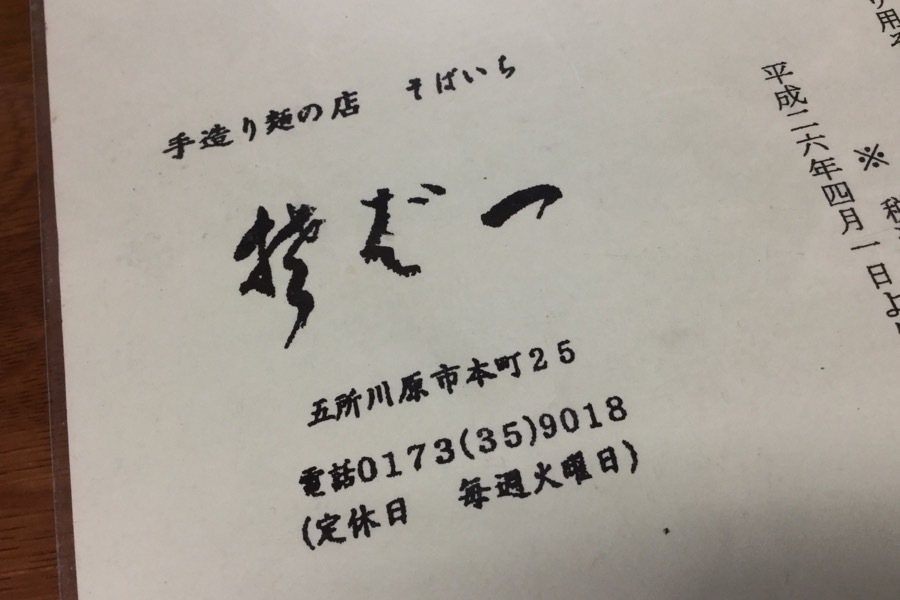 手造り麺の店 そばいち
五所川原市本町25
電話0173(35)9018
(定休日 毎週火曜日)
平成二六年四月一日よ
※ 税
り用